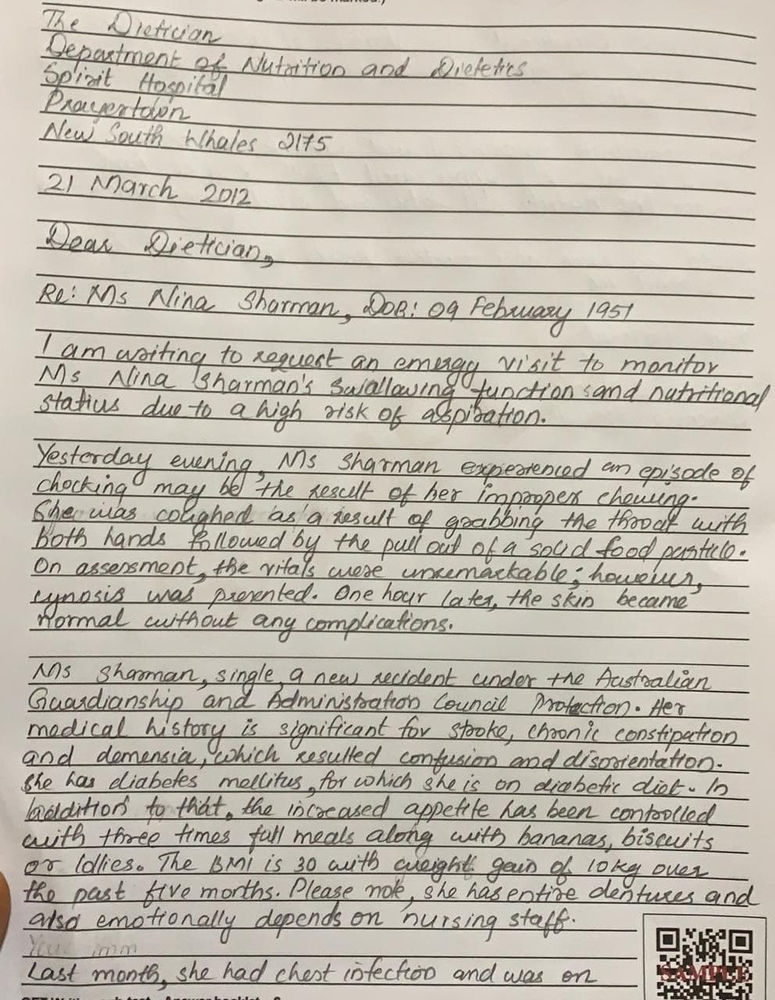 The Dietician
Department of Nutrition and Dietetics
Spirit Hospital
Prayertown
New South Whales 2175
21 March 2012
Dear Dietician,
Re: Ms Nina Sharman, DOB: 09 February 1951
I am writing to request an emergy visit to monitor
Ms Nina Sharman's swallowing function and nutritional
status due to a high risk of aspiration.
Yesterday evening, Ms Sharman experienced an episode of
chocking may be the result of her improper chewing.
She was coughed as a result of grabbing the throat with
both hands followed by the pull out of a solid food particle.
On assessment, the vitals were unremarkable; however,
cynosis was presented. One hour later, the skin became
normal without any complications.
Ms Sharman, single, a new recident under the Australian
Guardianship and Administration Council Protection. Her
medical history is significant for stroke, chronic constipation
and demensia, which resulted confusion and disorientation.
She has diabetes mellitus, for which she is on diabetic diet. In
addition to that, the increased appetite has been controlled
with three times full meals along with bananas, biscuits
or lollies. The BMI is 30 with weight gain of 10kg over
the past five months. Please note, she has entire dentures and
also emotionally depends on nursing staff.
Last month, she had chest infection and was on
SAMPLE